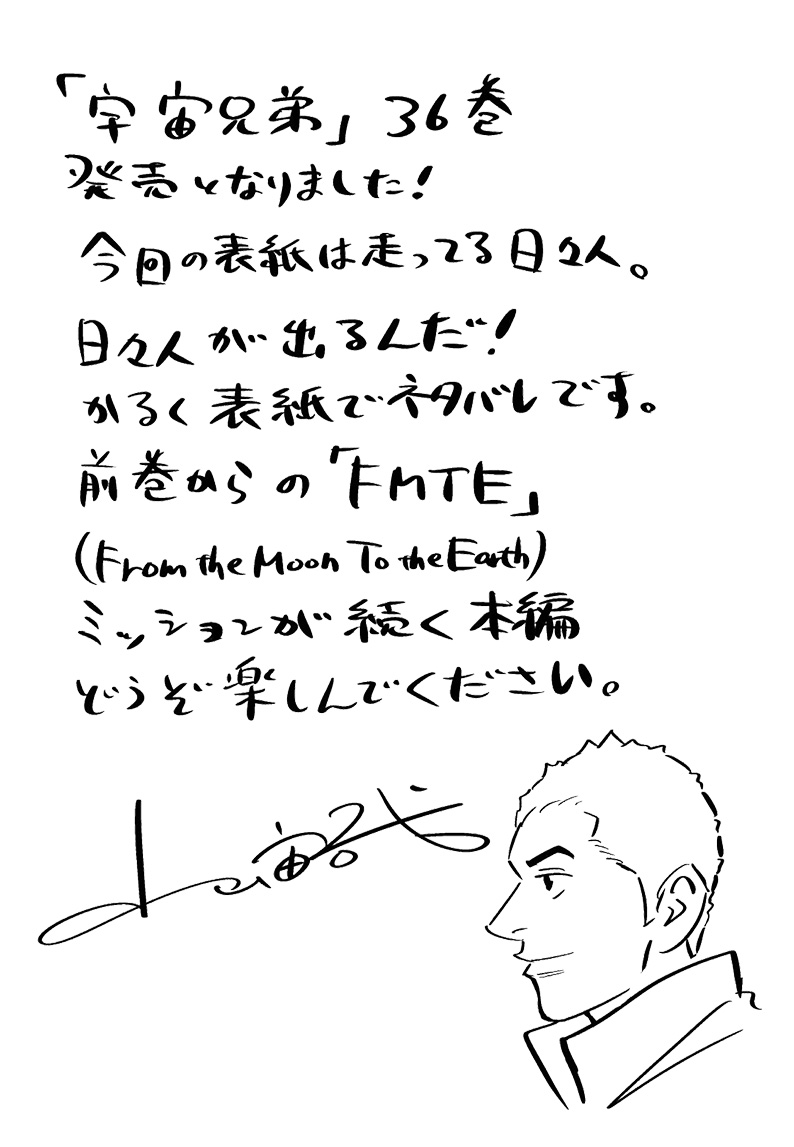 「宇宙兄弟」36巻
発売となりました！
今回の表紙は走ってる日々人。
日々人が出るんだ！
かるく表紙でネタバレです。
前巻からの「FMTE」
(From the Moon To the Earth)
ミッションが続く本編
どうぞ楽しんでください。